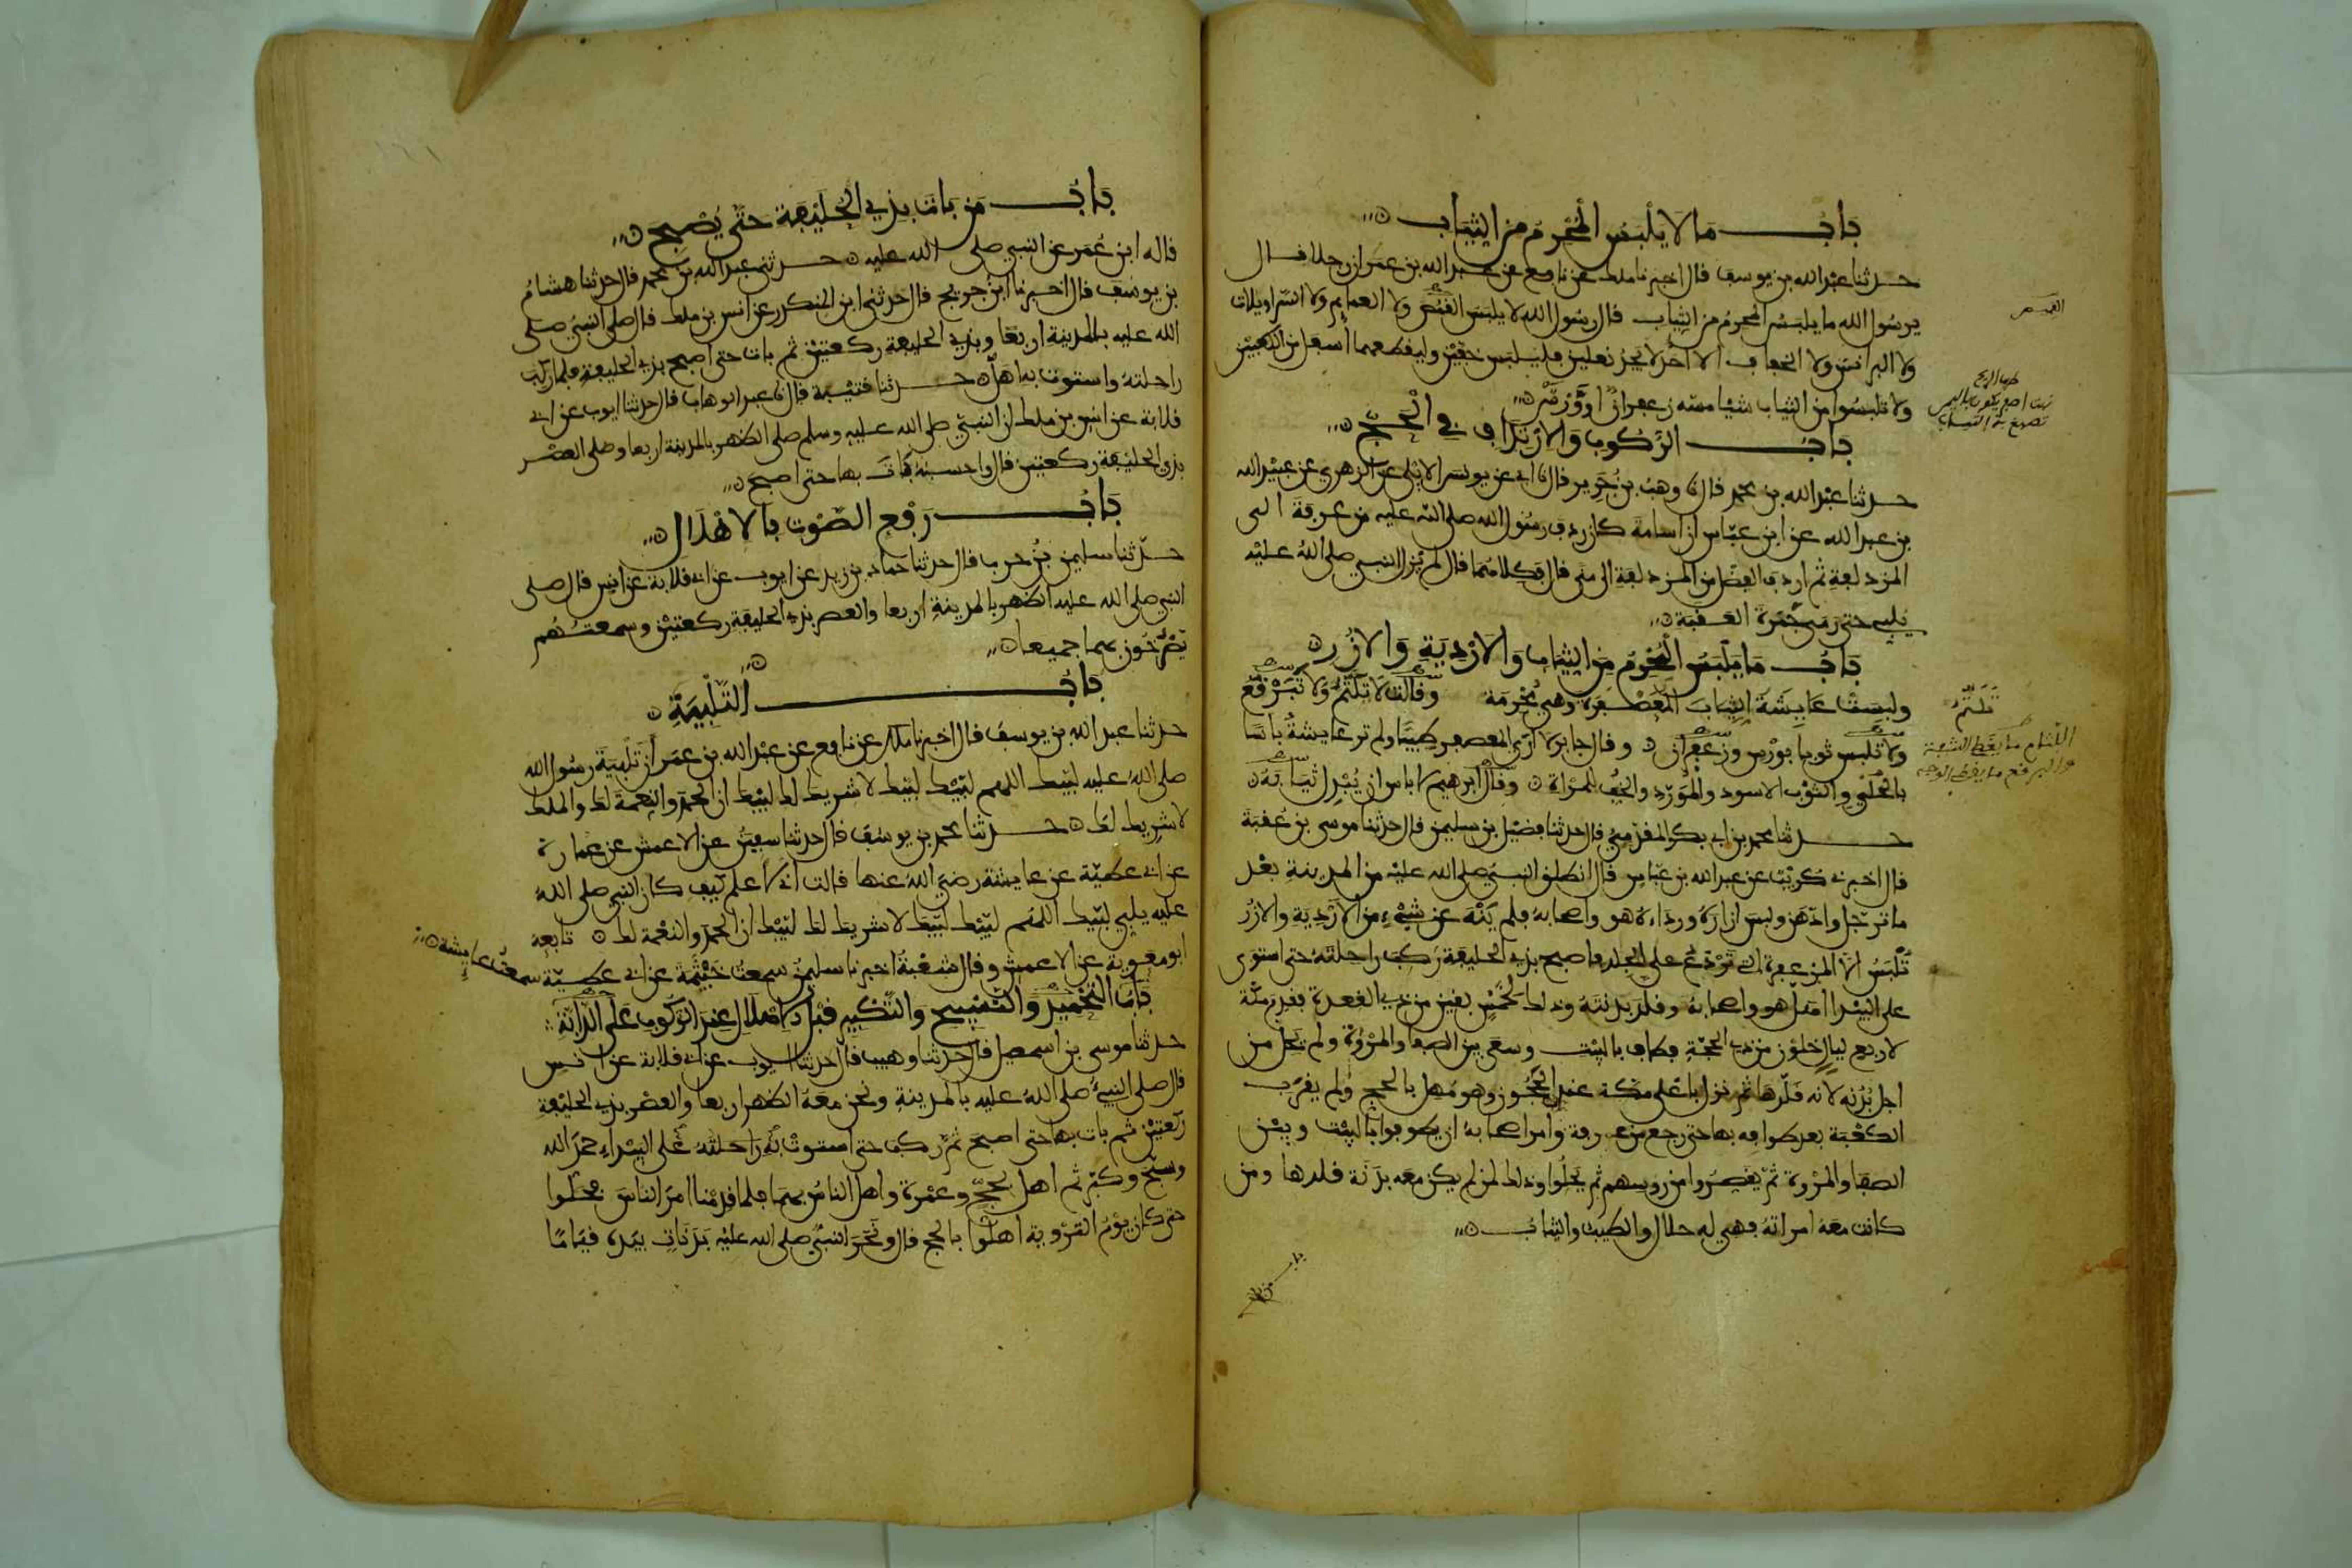 باب ما لا يلبس المحرم من الثياب
حدثنا عبد الله بن يوسف قال اخبرنا ملك عن نافع عن عبد الله بن عمر ان رجلا قال
يرسول الله ما يلبس المحرم من الثياب قال رسول الله لا يلبس القمص ولا العمايم ولا السراويلات
ولا البرانس ولا الخفاف الا احد لا يجد نعلين فليلبس خفين وليقطعهما أسفل من الكعبين
ولا تلبسوا من الثياب شيا مسه زعفران او ورس
باب الركوب والارتداف في الحج
حدثنا عبد الله بن محمد قال نا وهب بن جرير قال نا ابي عن يونس الايلي عن الزهري عن عبيد الله
بن عبد الله عن ابن عباس ان اسامة كان ردف رسول الله صلى الله عليه من عرفة الى
المزدلفة ثم اردف الفضل من المزدلفة الى منى قال فكلاهما قال لم يزل النبي صلى الله عليه
يلبي حتى رمى جمرة العقبة
باب ما يلبس المحرم من الثياب والاردية والازر
ولبست عايشة الثياب المعصفرة وهي محرمة وقالت لا تلثم ولا تبرقع
ولا تلبس ثوبا بورس وزعفران وقال جابر لا ارى المعصفر طيبا ولم تر عايشة باسا
بالحلي والثوب الاسود والمورد والخف للمراة وقال ابرهيم لا باس ان يبدل ثيابه
حدثنا محمد بن ابي بكر المقدمي قال حدثنا فضيل بن سليمن قال حدثنا موسى بن عقبة
قال اخبرني كريب عن عبد الله بن عباس قال انطلق النبي صلى الله عليه من المدينة بعد
ما ترجل وادهن ولبس ازاره ورداءه هو واصحابه فلم ينه عن شيء من الاردية والازر
تلبس الا المزعفرة التي تردع على الجلد فاصبح بذي الحليفة ركب راحلته حتى استوى
على البيداء اهل هو واصحابه وقلد بدنته وذلك لخمس بقين من ذي القعدة فقدم مكة
لاربع ليال خلون من ذي الحجة فطاف بالبيت وسعى بين الصفا والمروة ولم يحل من
اجل بدنه لانه قلدها ثم نزل باعلى مكة عند الحجون وهو مهل بالحج ولم يقرب
الكعبة بعد طوافه بها حتى رجع من عرفة وامر اصحابه ان يطوفوا بالبيت وبين
الصفا والمروة ثم يقصروا من رؤسهم ثم يحلوا وذلك لمن لم يكن معه بدنة قلدها ومن
كانت معه امراته فهي له حلال والطيب والثياب
القميص
تلثم
اللثام ما يغطي الشفة
والبرقع ما يغطي الوجه
باب من بات بذي الحليفة حتى يصبح
قاله ابن عمر عن النبي صلى الله عليه حدثني عبد الله بن محمد قال حدثنا هشام
بن يوسف قال اخبرنا ابن جريج قال حدثني ابن المنكدر عن انس بن ملك قال صلى النبي صلى
الله عليه بالمدينة اربعا وبذي الحليفة ركعتين ثم بات حتى اصبح بذي الحليفة فلما ركب
راحلته واستوت به اهل حدثنا قتيبة قال نا عبد الوهاب قال حدثنا ايوب عن ابي
قلابة عن انس بن ملك ان النبي صلى الله عليه وسلم صلى الظهر بالمدينة اربعا وصلى العصر
بذي الحليفة ركعتين قال واحسبه بات بها حتى اصبح
باب رفع الصوت بالاهلال
حدثنا سليمن بن حرب قال حدثنا حماد بن زيد عن ايوب عن ابي قلابة عن انس قال صلى
النبي صلى الله عليه الظهر بالمدينة اربعا والعصر بذي الحليفة ركعتين وسمعتهم
يصرخون بهما جميعا
باب التلبية
حدثنا عبد الله بن يوسف قال اخبرنا ملك عن نافع عن عبد الله بن عمر ان تلبية رسول الله
صلى الله عليه لبيك اللهم لبيك لبيك لا شريك لك لبيك ان الحمد والنعمة لك والملك
لا شريك لك حدثنا محمد بن يوسف قال حدثنا سفين عن الاعمش عن عمارة
عن ابي عطية عن عايشة رضي الله عنها قالت اني لاعلم كيف كان النبي صلى الله
عليه يلبي لبيك اللهم لبيك لبيك لا شريك لك لبيك ان الحمد والنعمة لك تابعه
ابو معوية عن الاعمش وقال شعبة اخبرنا سليمن سمعت خيثمة عن ابي عطية سمعت عايشة
باب التحميد والتسبيح والتكبير قبل الاهلال عند الركوب على الدابة
حدثنا موسى بن اسمعيل قال حدثنا وهيب قال حدثنا ايوب عن ابي قلابة عن انس
قال صلى النبي صلى الله عليه بالمدينة ونحن معه الظهر اربعا والعصر بذي الحليفة
ركعتين ثم بات بها حتى اصبح ثم ركب حتى استوت به راحلته على البيداء حمد الله
وسبح وكبر ثم اهل بحج وعمرة واهل الناس بهما فلما قدمنا امر الناس فحلوا
حتى كان يوم التروية اهلوا بالحج قال ونحر النبي صلى الله عليه بدنات بيده قياما